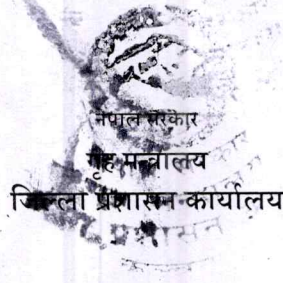 नेपाल सरकार
गृह मन्त्रालय
जिल्ला प्रशासन कार्यालय
प्रशासन